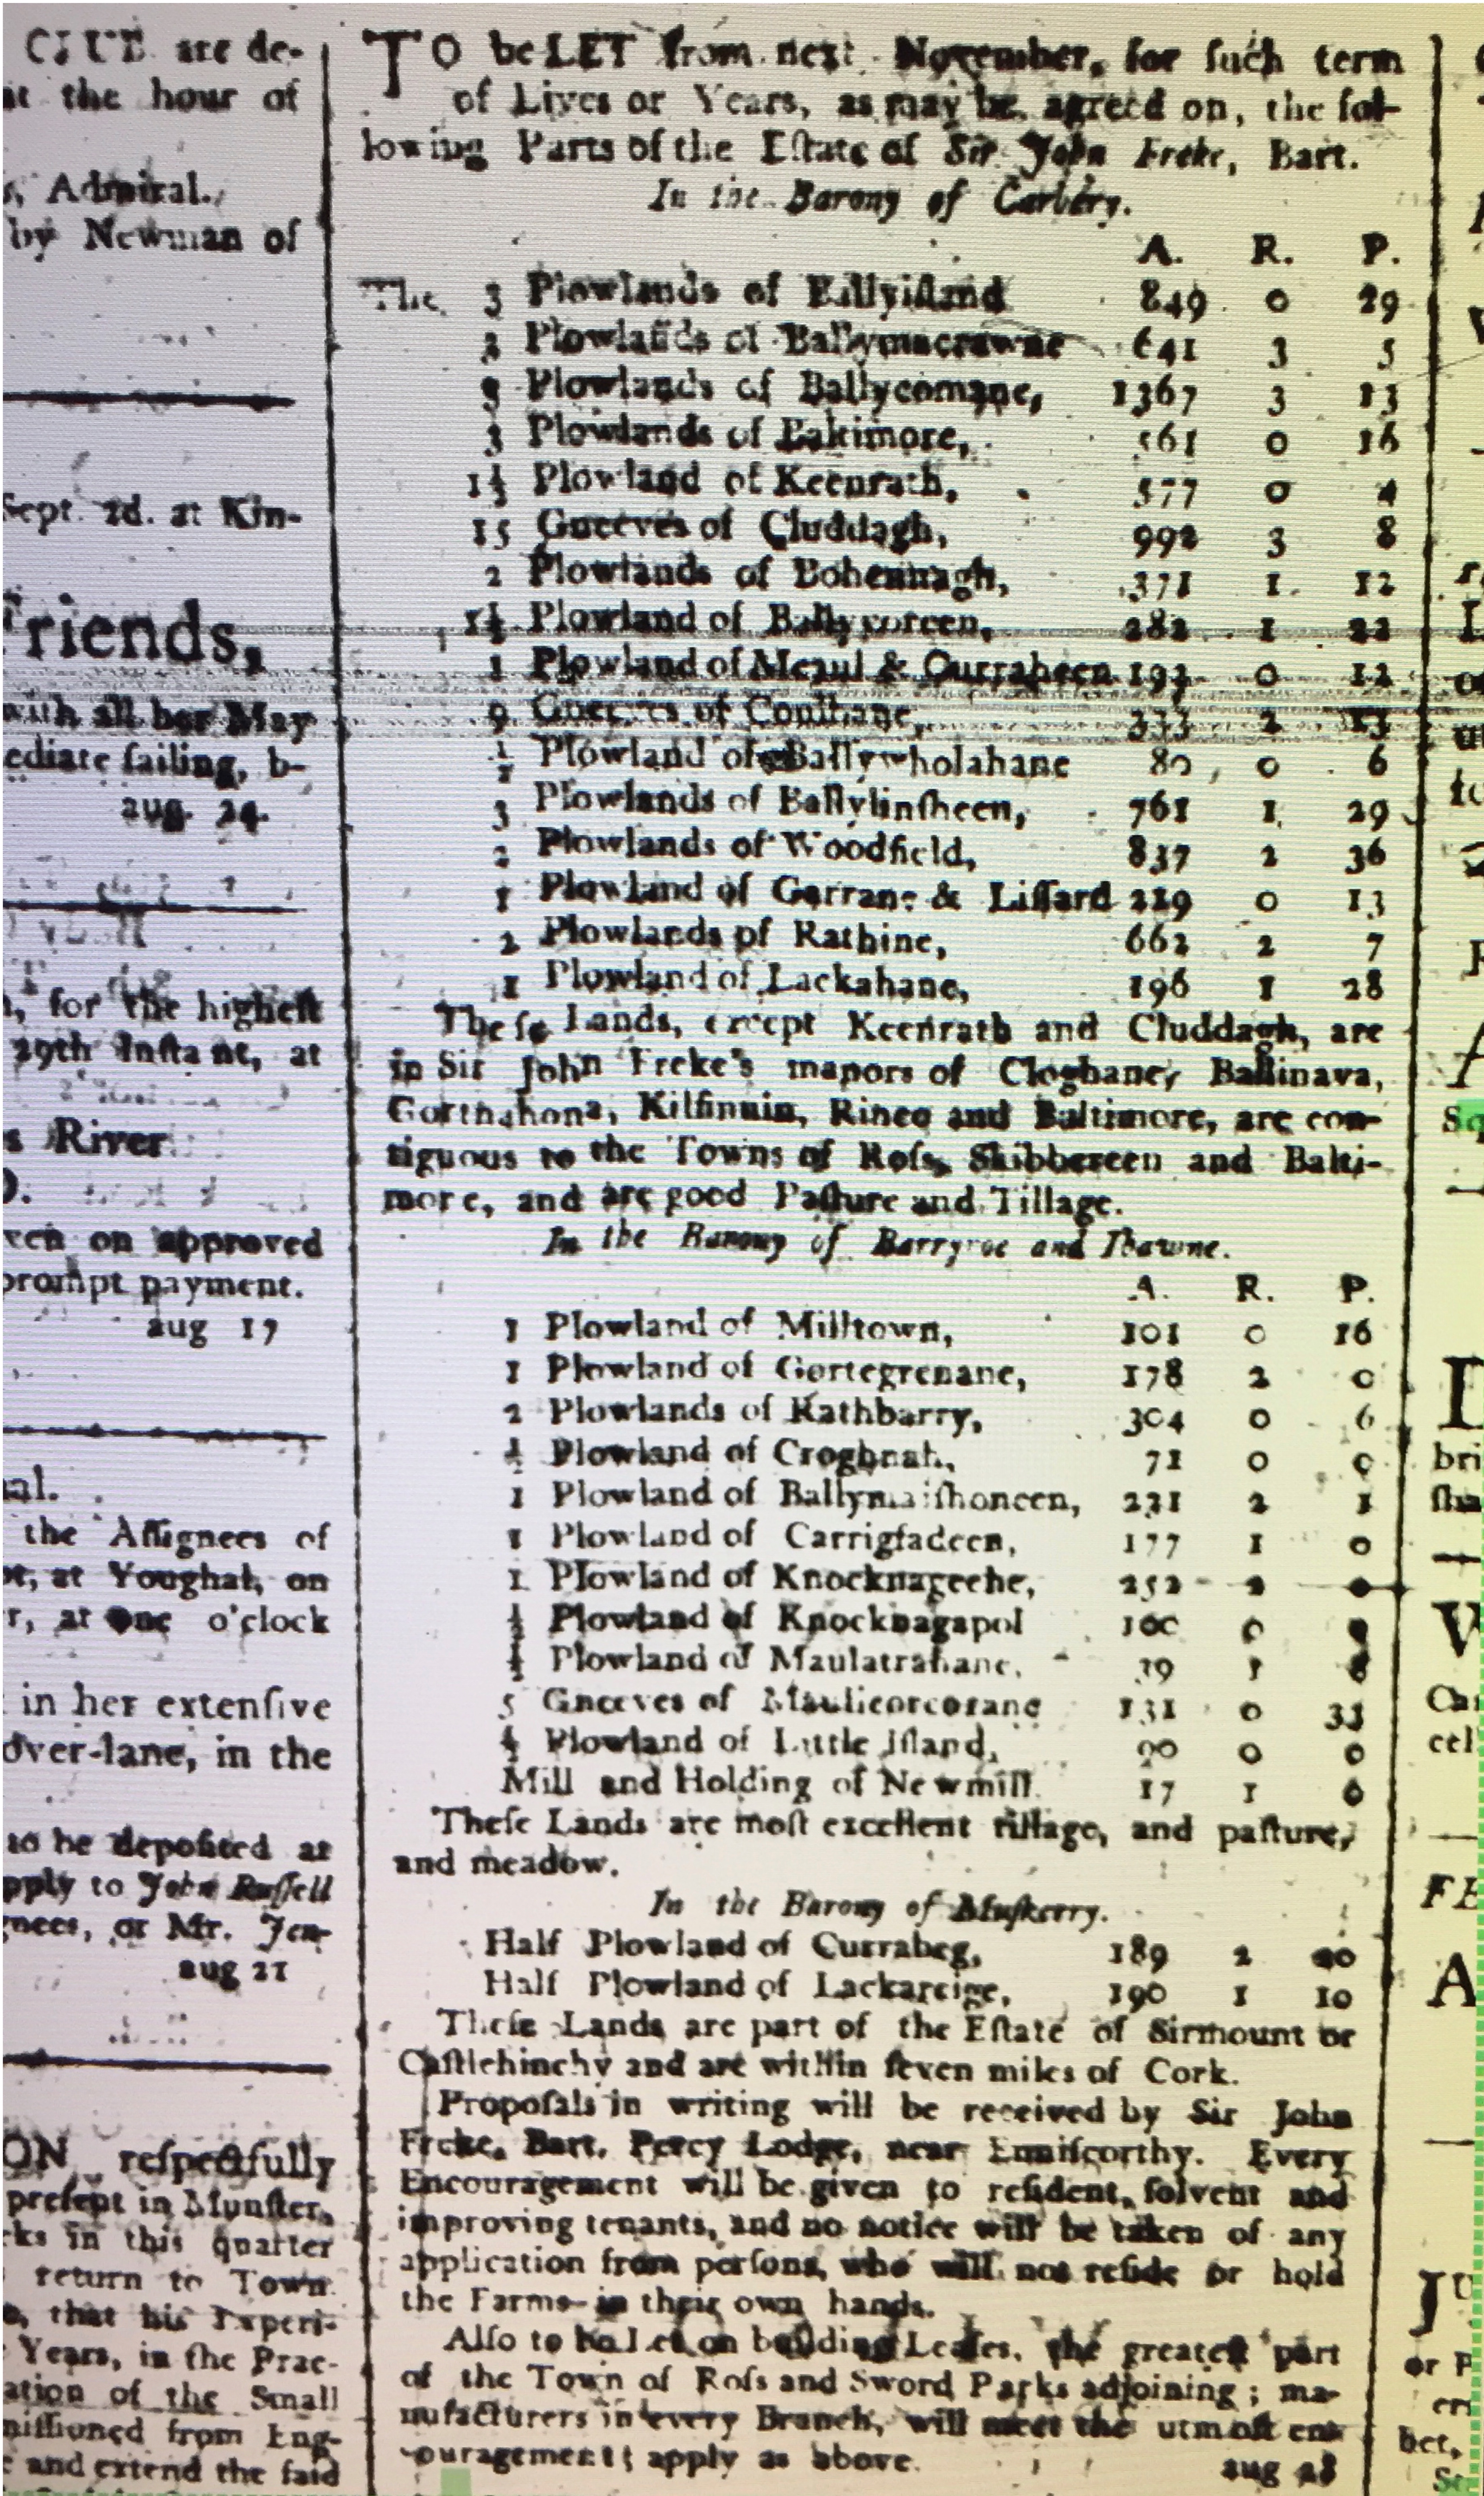 CLUB are de-
at the hour of
s, Admiral.
by Newman of
Sept. 2d. at Kin-
Friends,
with all her May
ediate ſailing, b-
aug. 24.
n, for the higheſt
29th Inſtant, at
s River
ven on approved
prompt payment.
aug 17
nal.
the Aſſignees of
at Youghal, on
r, at one o'clock
in her extenſive
over-lane, in the
to be depoſited at
pply to John Ruſſell
gnees, or Mr. Jen-
aug 21
ON reſpectfully
preſent in Munſter,
rks in this quarter
return to Town
that his Experi-
Years, in the Prac-
ation of the Small
miſſioned from Eng-
and extend the ſaid
TO be LET from next November, for ſuch term
of Lives or Years, as may be agreed on, the fol-
lowing Parts of the Eſtate of Sir John Freke, Bart.
In the Barony of Carbery.
A. R. P.
The 3 Plowlands of Ballyiſland 849 0 29
2 Plowlands of Ballymacrawne 641 3 5
9 Plowlands of Ballycomane, 1367 3 13
3 Plowlands of Baltimore, 561 0 16
1½ Plowland of Keenrath, 577 0 4
15 Gneeves of Cluddagh, 992 3 8
2 Plowlands of Bohennagh, 371 1 12
1½ Plowland of Ballyvoreen, 282 1 22
1 Plowland of Meaul & Curraheen 193 0 12
9 Gneeves of 333 2 13
½ Plowland of Ballywholahane 80 0 6
3 Plowlands of Ballylinſheen, 761 1 29
2 Plowlands of Woodfield, 837 2 36
1 Plowland of Garrane & Liſſard 219 0 13
2 Plowlands of Rathine, 662 2 7
1 Plowland of Lackahane, 196 1 28
Theſe Lands, except Keenrath and Cluddagh, are
in Sir John Freke's manors of Cloghane, Ballinava,
Gortnahona, Kilfinnin, Rineo and Baltimore, are con-
tiguous to the Towns of Roſs, Skibbereen and Balti-
more, and are good Paſture and Tillage.
In the Barony of Barryroe and Ibawne.
A. R. P.
1 Plowland of Milltown, 101 0 16
1 Plowland of Gortegrenane, 178 2 0
2 Plowlands of Rathbarry, 304 0 6
½ Plowland of Croghnah, 71 0 0
1 Plowland of Ballymaiſhoneen, 231 2 1
1 Plowland of Carrigfadeen, 177 1 0
1 Plowland of Knocknageehe, 252 2 0
½ Plowland of Knocknagapol 100 0
½ Plowland of Maulatrahane, 39 1
5 Gneeves of Maulicorcorane 131 0 33
½ Plowland of Little Iſland, 90 0 0
Mill and Holding of Newmill 17 1 0
Theſe Lands are moſt excellent tillage, and paſture,
and meadow.
In the Barony of Muſkerry.
Half Plowland of Currabeg, 189 2 20
Half Plowland of Lackareige, 190 1 10
Theſe Lands are part of the Eſtate of Sirmount or
Caſtlehinchy and are within ſeven miles of Cork.
Propoſals in writing will be received by Sir John
Freke, Bart. Percy Lodge, near Enniſcorthy. Every
Encouragement will be given to reſident, ſolvent and
improving tenants, and no notice will be taken of any
application from perſons, who will not reſide or hold
the Farms in their own hands.
Alſo to be Let on building Leaſes, the greateſt part
of the Town of Roſs and Sword Parks adjoining; ma-
nufacturers in every Branch, will meet the utmoſt en-
couragement; apply as above.
aug 28